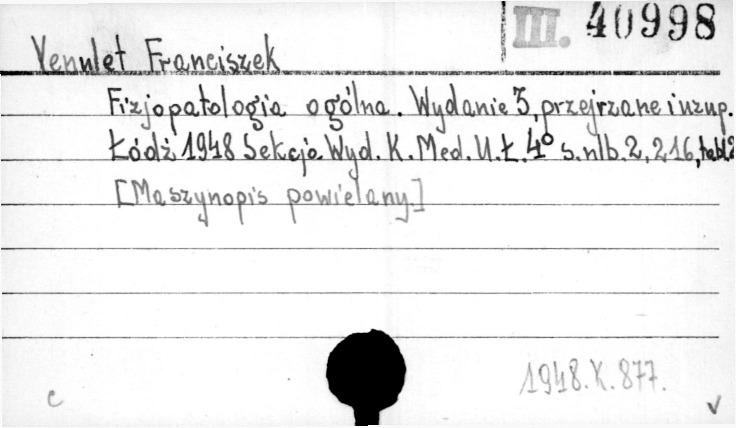 III. 40998
Venulet Franciszek
Fizjopatologia ogólna. Wydanie 3, przejrzane i uzup.
Łódź 1948 Sekcja Wyd. K. Med. U. Ł. 4° s. nlb. 2, 216, tabl. 2
[Maszynopis powielany]
1948. K. 877.
c
v